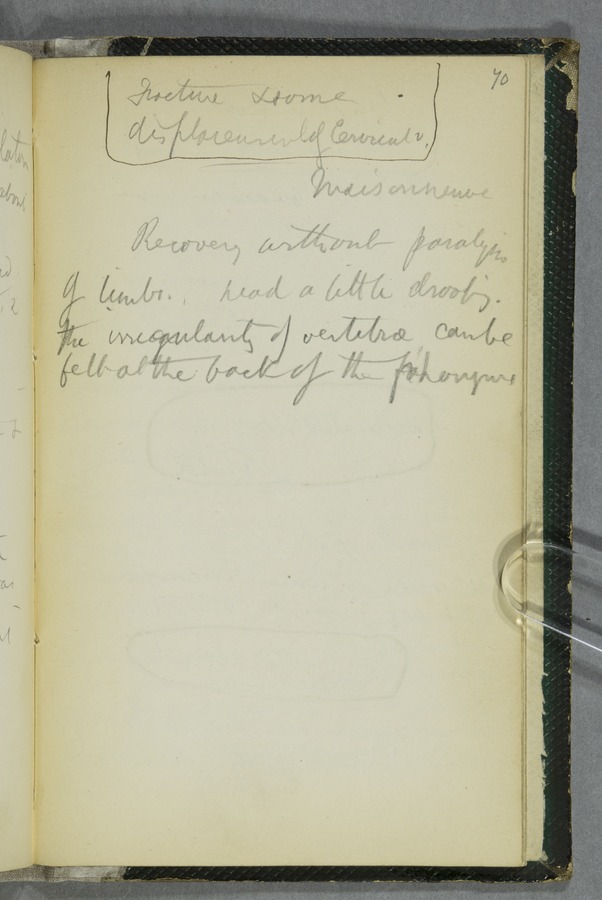 70
Fracture & some
displacement of Cervical v.
Maisonneuve
Recovery without paralysis
of limbs. head a little drooping.
the irregularity of vertebræ can be
felt at the back of the pharynx